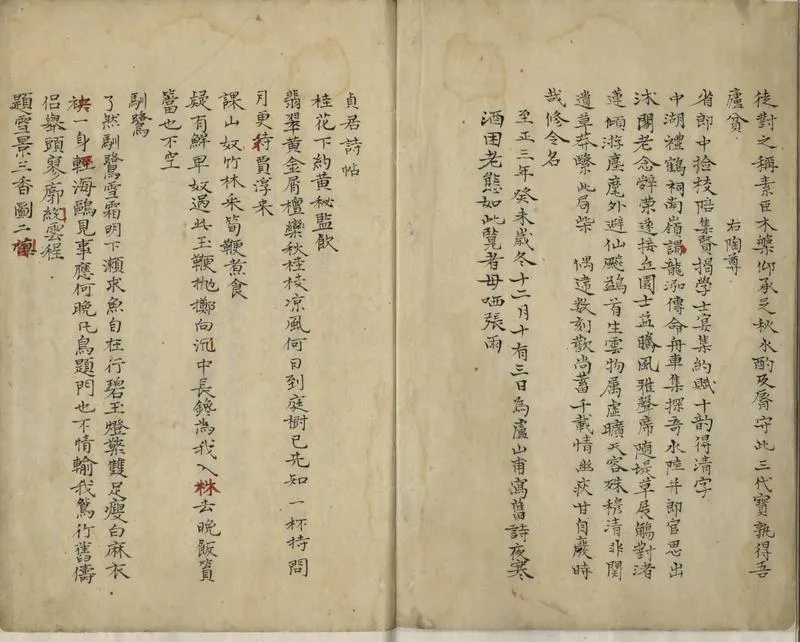 徒對之稱素臣木藥仰承之秋水酌及脣守此三代寶孰得吾
廬貧
右陶尊
省郎中拾枝陪集賢揭學士宴集約賦十韵得清字
中湖禮鶴祠南嶺謁龍泓傳命舟車集探奇水陸并郎官思出
沐閣老念辭榮逸接丘園士益騰風雅聲席隨堤草展觴對渚
蓮傾游塵麾外避仙颷鷁首生雲物属虛曠天容殊穆清非關
遺草莽際此局柴 偶違數刻歡尚蓄千載情幽疾甘自廢時
哉修令名
至正三年癸未歲冬十二月十有三日為廬山甫寫舊詩夜寒
酒困老態如此覽者毋哂張雨
貞居詩帖
桂花下約黄秘監飲
翡翠黄金屑檀欒秋桂枝凉風何日到庭樹已先知一杯持問
月更待買淳来
課山奴竹林采筍鞭煮食
疑有鮮卑奴過此玉鞭拋擲向泥中長鑱為我入林去晚飯篔
簹也不空
馴鷺
了然馴鷺雪霜明下瀬求魚自在行碧玉燈檠雙足瘦白麻衣
袂一身輕海鷗見事應何晚凡鳥題門也不情輸我鴛行舊儔
侣舉頭寥廓敛雲程
題雪景三香圖二